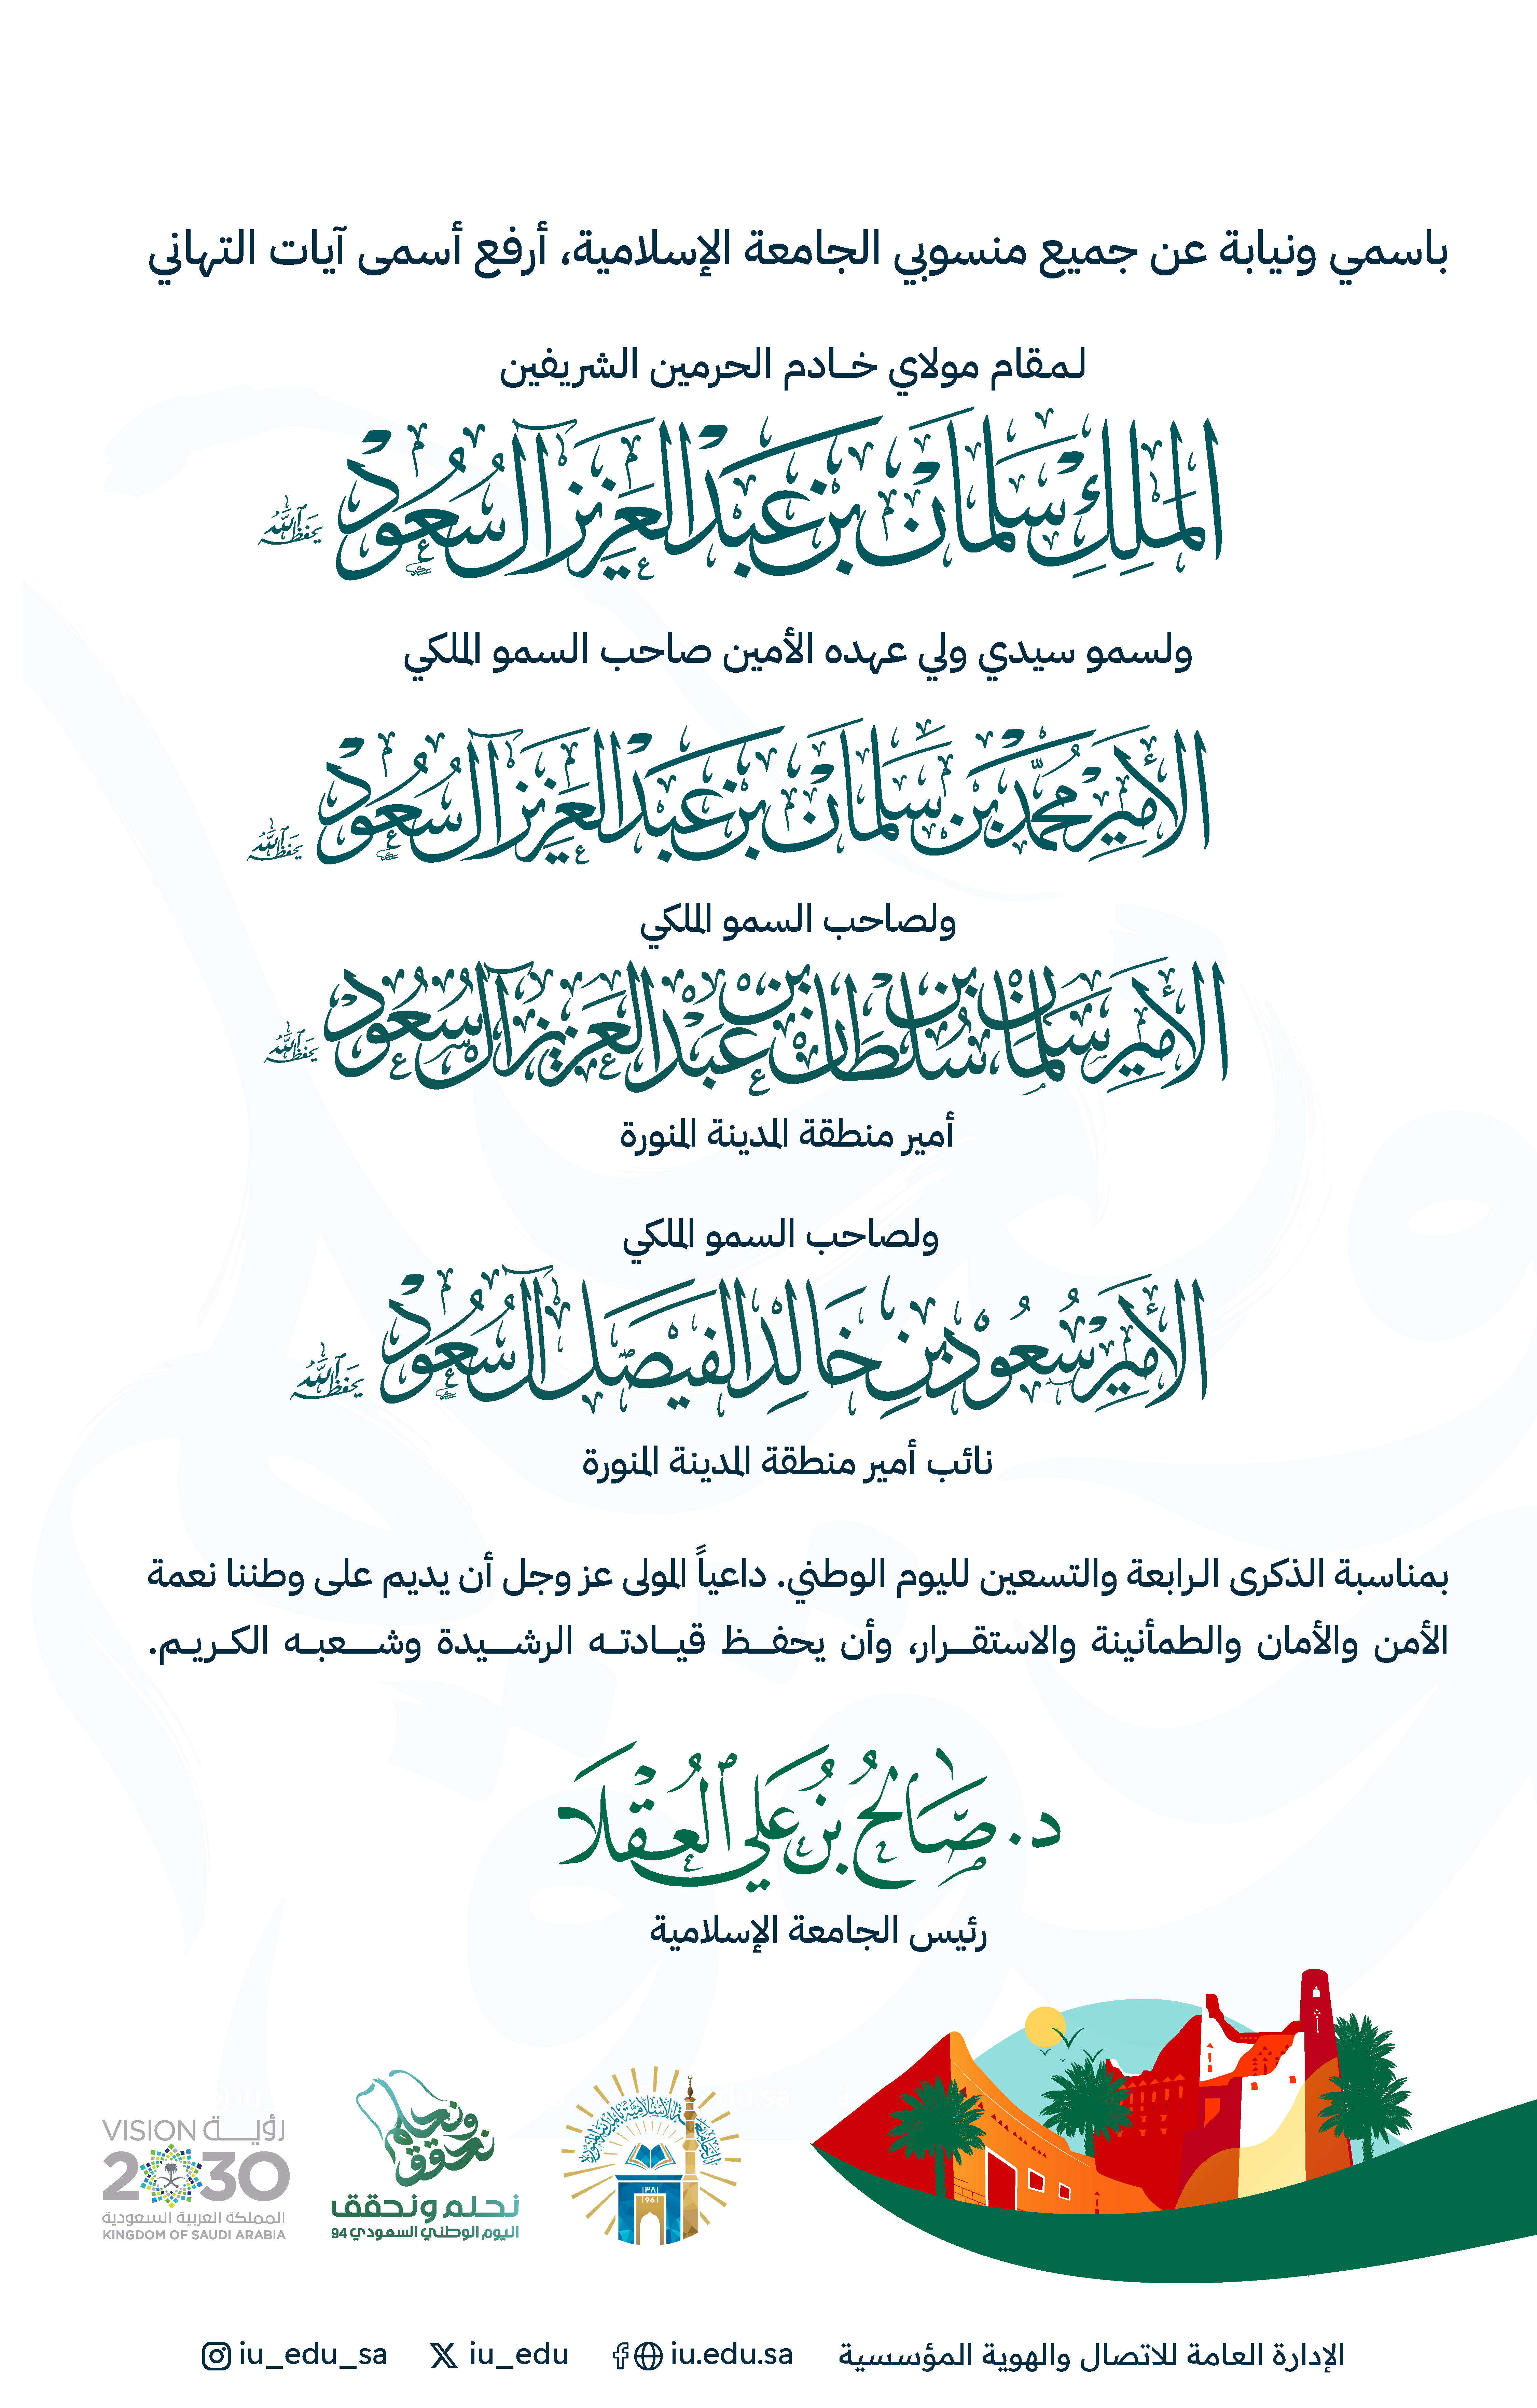 باسمي ونيابة عن جميع منسوبي الجامعة الإسلامية، أرفع أسمى آيات التهاني
لمقام مولاي خـادم الحرمين الشريفين
الملك سلمان بن عبد العزيز آل سعود يحفظه الله
ولسمو سيدي ولي عهده الأمين صاحب السمو الملكي
الأمير محمد بن سلمان بن عبد العزيز آل سعود يحفظه الله
ولصاحب السمو الملكي
الأمير سلمان بن سلطان بن عبد العزيز آل سعود يحفظه الله
أمير منطقة المدينة المنورة
ولصاحب السمو الملكي
الأمير سعود بن خالد الفيصل آل سعود يحفظه الله
نائب أمير منطقة المدينة المنورة
بمناسبة الذكرى الرابعة والتسعين لليوم الوطني. داعياً المولى عز وجل أن يديم على وطننا نعمة
الأمن والأمان والطمأنينة والاستقـرار، وأن يحفـظ قيـادتـه الرشـيدة وشـعبـه الكـريـم.
د. صالح بن علي العقلا
رئيس الجامعة الإسلامية
الجامعة الإسلامية بالمدينة المنورة
١٣٨١
1961
ونحلم
نحقق
نحلم ونحقق
اليوم الوطني السعودي 94
VISION رؤيـة
2030
المملكة العربية السعودية
KINGDOM OF SAUDI ARABIA
الإدارة العامة للاتصال والهوية المؤسسية
iu.edu.sa
iu_edu
iu_edu_sa